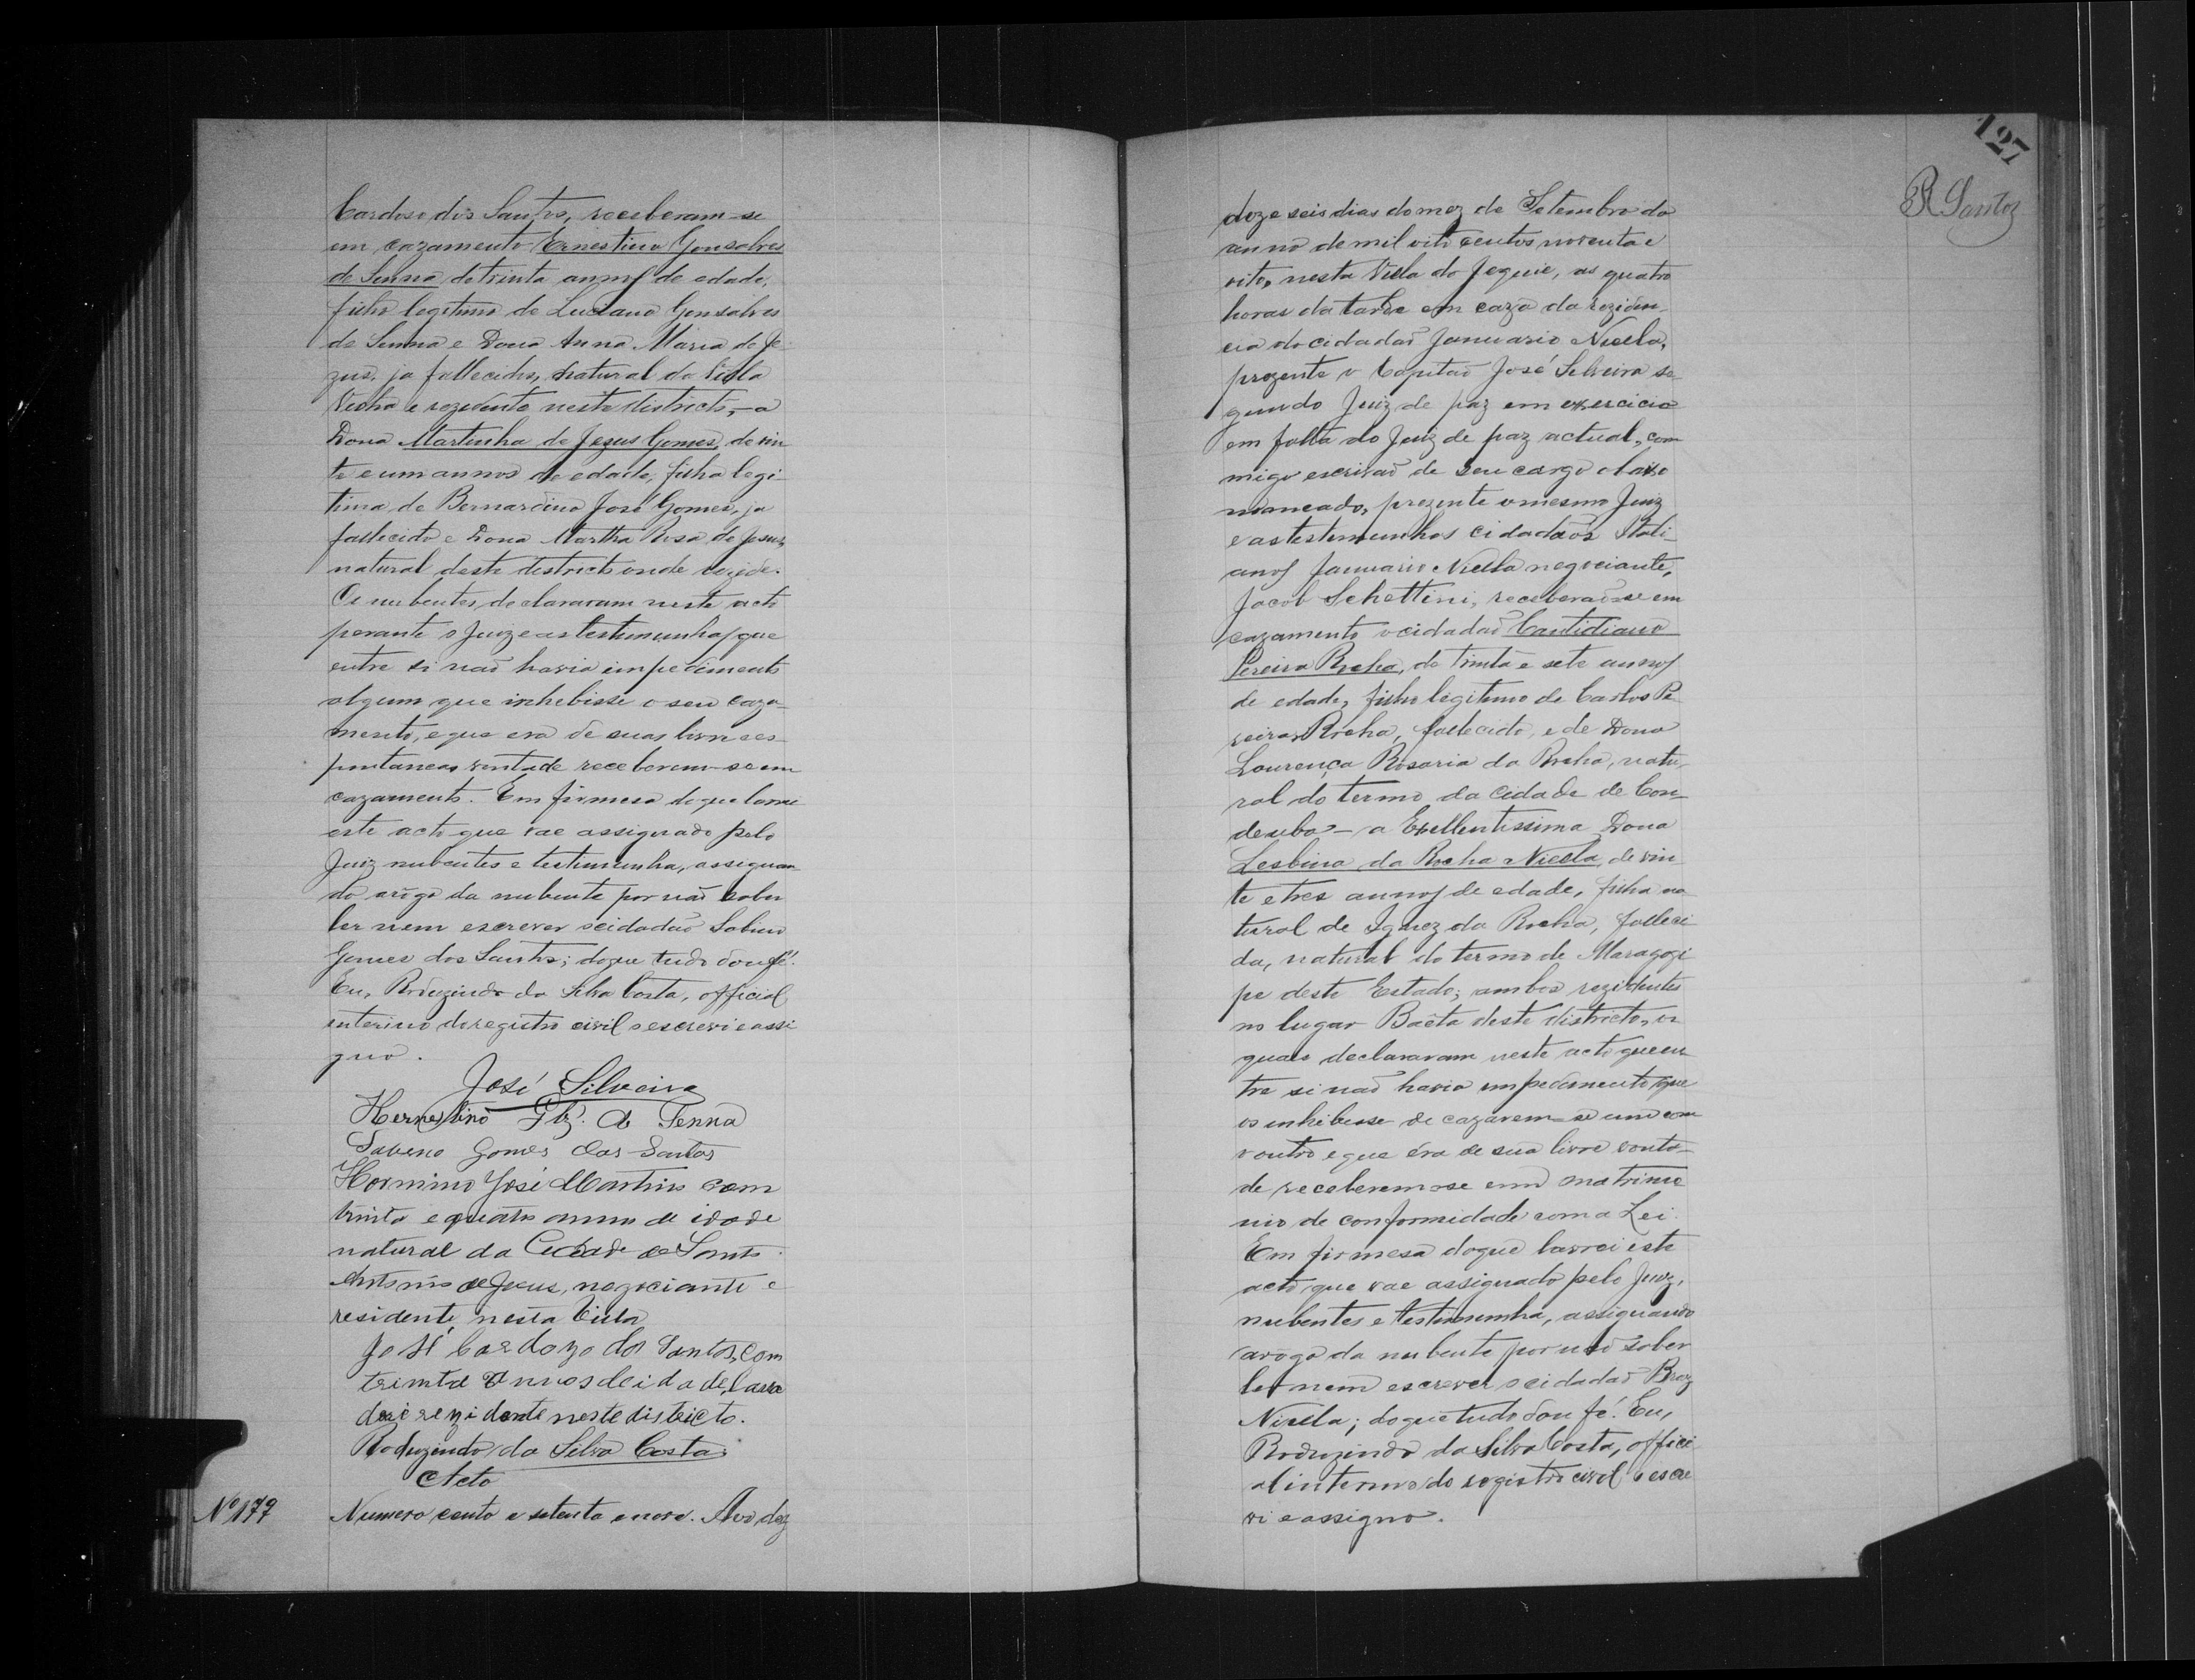 Cardoso dos Santos, receberam-se
em cazamento Ernestino Gonsalves
de Senna de trinta annos de edade,
filho legitimo de Luciano Gonsalves
de Senna e Dona Anna Maria de Je
zus, ja fallecidos, natural da Villa
Velha e rezidente neste districto, - a
Dona Martinha de Jezus Gomes, de vin
te e um annos de edade, filha legi-
tima de Bernardino José Gomes, ja
fallecido e Dona Martha Rosa de Jesus,
natural deste districto onde rezide.
Os nubentes declararam neste acto
perante o Juiz e as testemunhas que
entre si naõ havia impedimento
algum que inhebisse o seu caza-
mento, e que era de suas livres e es-
pontaneas vontade receberem-se em
cazamento. Em firmesa do que lavrei
este acto que vae assignado pelo
Juiz nubentes e testemunha, assignan
do arôgo da nubente por naõ saber
ler nem escrever o cidadaõ Sabino
Gomes dos Santos; do que tudo dou fé.
Eu, Roduzindo da Silva Costa, official
interino do registro civil o escrevi e assi
gno.
José Silveira
Hernestino Glz. de Senna
Saveno Gomes dos Santos
Hormino José Martins com
trinta e quatro annos de idade
natural da Cidade de Santo
Antonio de Jesus, negociante e
residente nesta Villa
José Cardozo dos Santos, com
trinta annos de idade, Lavra
dor e rezidente neste districto.
Roduzindo da Silva Costa
Acto
Nº 179 Numero cento e setenta e nove. Aos dez
127
R Santos
doze seis dias do mez de Setembro do
anno de mil oito centos noventa e
oito, nesta Villa do Jequie, as quatro
horas da tarde em caza da reziden-
cia do cidadaõ Januario Niella,
prezente o Capitaõ José Silveira se-
gundo Juiz de paz em exsercicio
em falta do Juiz de paz actual, com
migo escrivaõ de seu cargo abaixo
nomeado, prezente o mesmo Juiz
e as testemunhas cidadãos Itali-
anos Januario Niella negociante,
Jacob Schettini, receberaõ-se em
cazamento o cidadaõ Cantidiano
Pereira Rocha, de trinta e sete annos
de edade, filho legitimo de Carlos Pe
reira Rocha, fallecido, e de Dona
Lourença Rosaria da Rocha, natu-
ral do termo da cidade de Con-
deuba - a Exellentissima Dona
Lesbina da Rocha Niella, de vin
te e tres annos de edade, filha na
tural de Ignez da Rocha, falleci
da, natural do termo de Maragogi
pe deste Estado; ambos rezidentes
no lugar Baêta deste districto, os
quaes declararam neste acto que en
tre si naõ havia impedimento que
os inhibisse de cazarem-se um com
o outro e que éra de sua livre vonta-
de receberem-se em matrimo
nio de conformidade com a Lei.
Em firmesa do que lavrei este
acto que vae assignado pelo Juiz,
nubentes e testemunha, assignando
arôgo da nubente por naõ saber
ler nem escrever o cidadaõ Braz
Niella; do que tudo dou fé. Eu,
Roduzindo da Silva Costa, offici
al interino do registro civil o escre
vi e assigno.